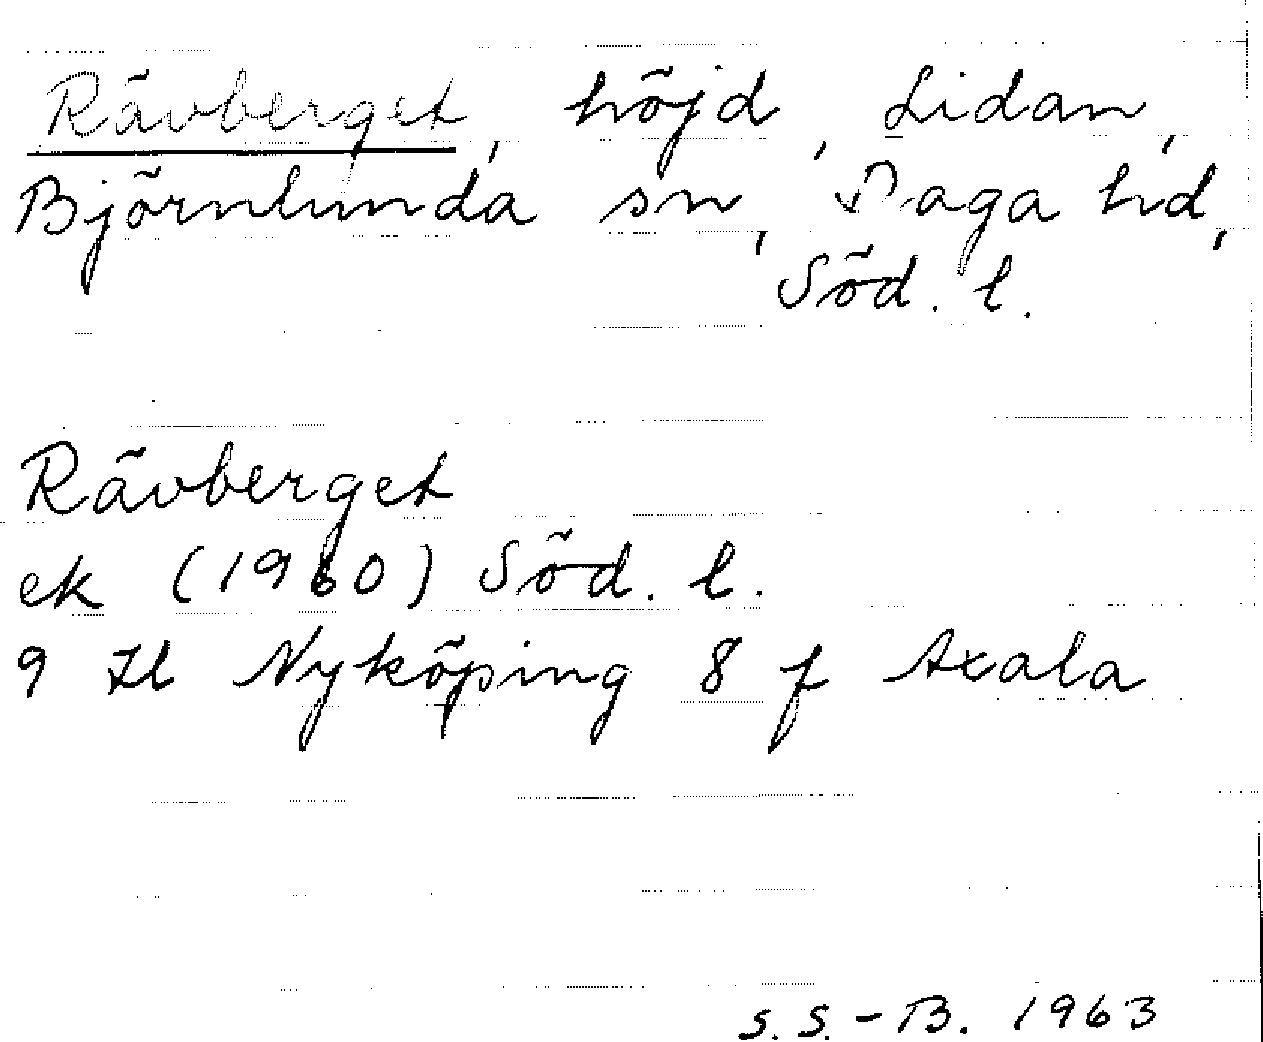 Rävberget, höjd, Lidan,
Björnlunda sn, Daga hd,
Söd. l.
Rävberget
ek (1960) Söd. l.
9 H Nyköping 8 f Axala
S. S. - B. 1963